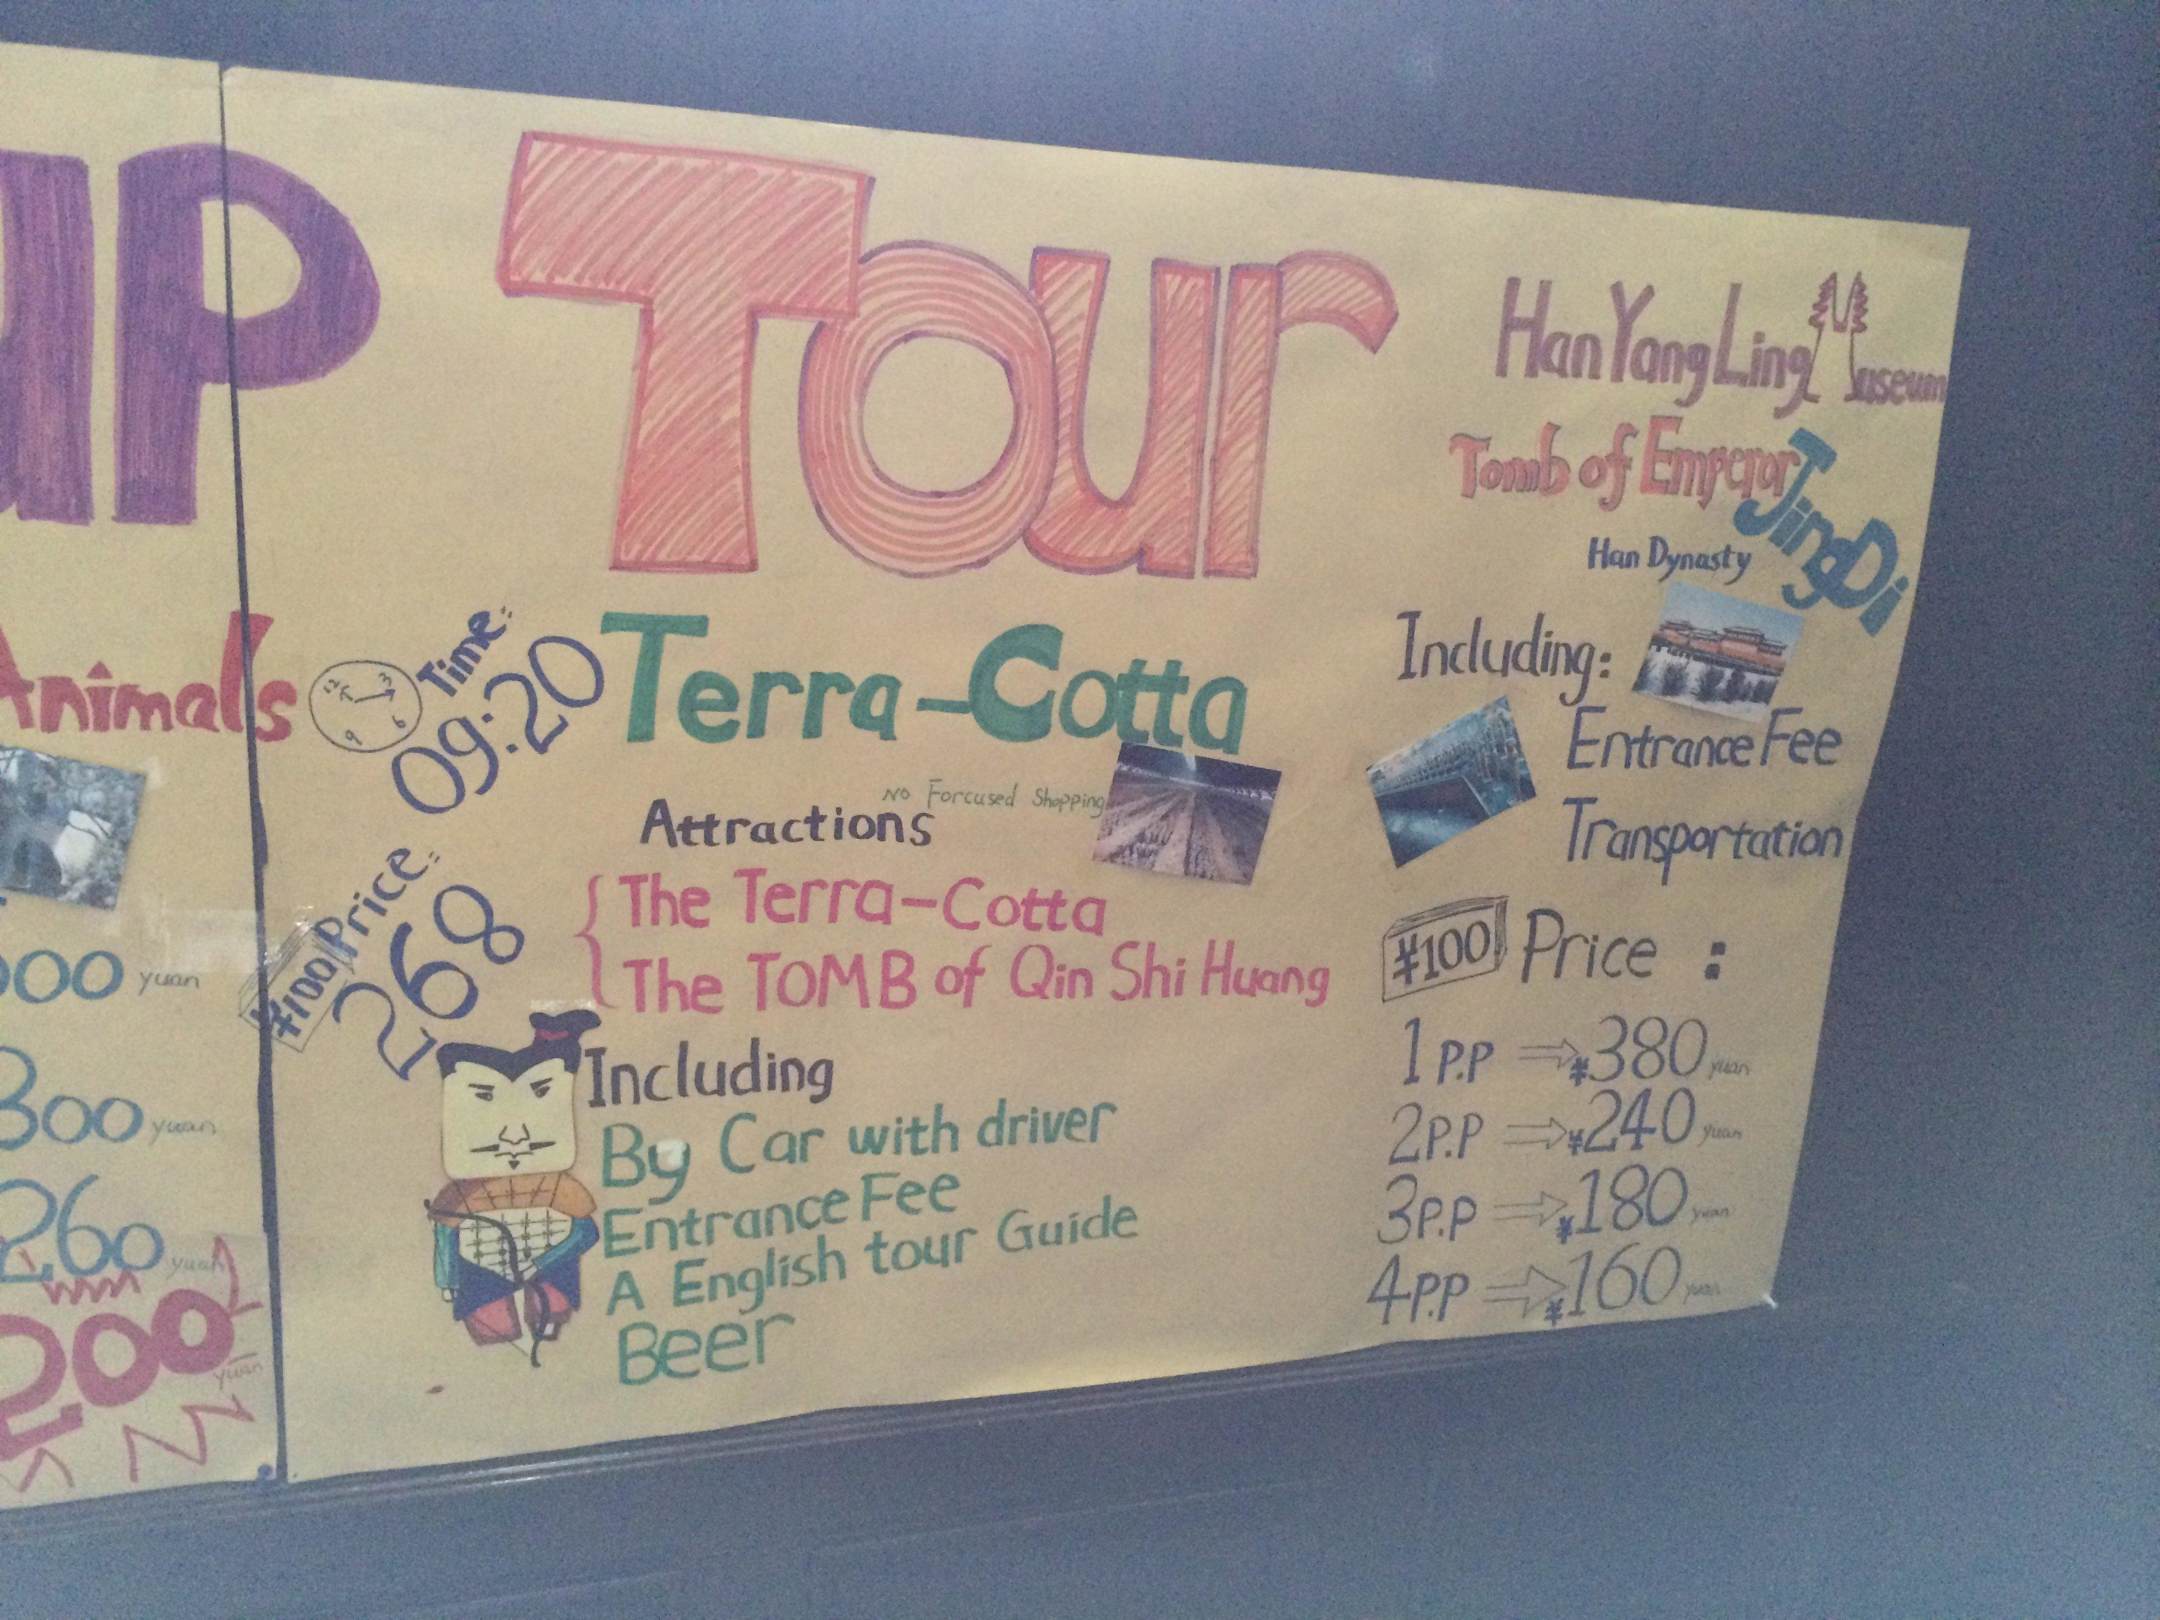 UP Tour
Animals
500 yuan
300 yuan
260 yuan
200
yuan
12 3 6 9
Time:
09:20
Price:
¥100
268
Terra-Cotta
No Forcused Shopping
Attractions
The Terra-Cotta
The TOMB of Qin Shi Huang
Including
By Car with driver
Entrance Fee
A English tour Guide
Beer
Han Yang Ling Museum
Tomb of Emperor JingDi
Han Dynasty
Including:
Entrance Fee
Transportation
¥100 Price :
1 P.P ⇒ ¥380 yuan
2P.P ⇒ ¥240 yuan
3P.P ⇒ ¥180 yuan
4P.P ⇒ ¥160 yuan